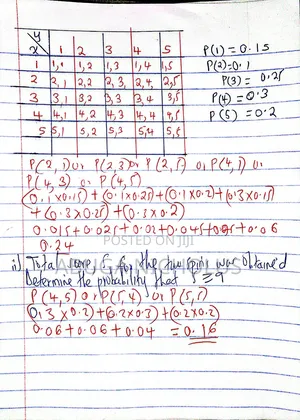 y
x 1 2 3 4 5
1 1,1 1,2 1,3 1,4 1,5
2 2,1 2,2 2,3, 2,4, 2,5
3 3,1 3,2 3,3 3,4 3,5
4 4,1 4,2 4,3 4,4 4,5
5 5,1 5,2 5,3 5,4 5,5
P(1) = 0.15
P(2)=0.1
P(3) = 0.25
P(4) = 0.3
P(5) = 0.2
P(2,1) or P(2,3) or P(2,5) or P(4,1) or
P(4,3) or P(4,5)
(0.1x0.15) + (0.1x0.25) + (0.1x0.2) + (0.3x0.15)
+ (0.3x0.25) + (0.3x0.2)
0.015 + 0.025 + 0.02 + 0.045 + + 0.06
0.24
POSTED ON JIJI
ii) Total score, S, for the two spins was obtained
Determine the probability that S ≥ 9
P(4,5) or P(5,4) or P(5,5)
(0.3 x0.2) + (0.2x0.3) + (0.2x0.2)
0.06 + 0.06 + 0.04 = 0.16